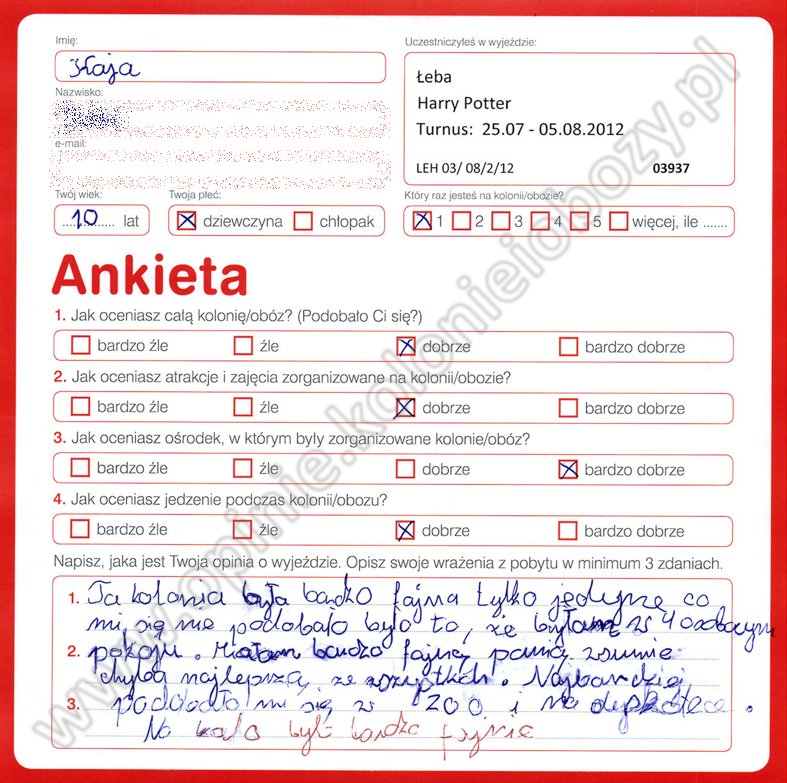 Imię:
Kaja
Nazwisko:
e-mail:
Twój wiek:
10 lat
Twoja płeć:
dziewczyna chłopak
Uczestniczyłeś w wyjeździe:
Łeba
Harry Potter
Turnus: 25.07 - 05.08.2012
LEH 03/ 08/2/12 03937
Który raz jesteś na kolonii/obozie?
1 2 3 4 5 więcej, ile .......
Ankieta
1. Jak oceniasz całą kolonię/obóz? (Podobało Ci się?)
bardzo źle źle dobrze bardzo dobrze
2. Jak oceniasz atrakcje i zajęcia zorganizowane na kolonii/obozie?
bardzo źle źle dobrze bardzo dobrze
3. Jak oceniasz ośrodek, w którym były zorganizowane kolonie/obóz?
bardzo źle źle dobrze bardzo dobrze
4. Jak oceniasz jedzenie podczas kolonii/obozu?
bardzo źle źle dobrze bardzo dobrze
Napisz, jaka jest Twoja opinia o wyjeździe. Opisz swoje wrażenia z pobytu w minimum 3 zdaniach.
1. Ta kolonia była bardzo fajna tylko jedyne co
mi się nie podobało było to, że byłam w 4 osobowym
2. pokoju. Miałam bardzo fajną panią, w sumie
chyba najlepszą ze wszystkich. Najbardziej
3. podobało mi się w ZOO i na dyskotece.
No bardzo fajnie
www.opinie.kolonieiobozy.pl